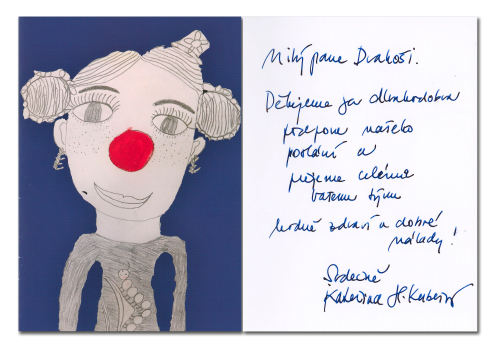 Milý pane Drakoši.
Děkujeme za dlouhodobou
podporu našeho
poslání a
přejeme celému
vašemu týmu
hodně zdraví a dobré
nálady!
Srdečně
Kateřina H.